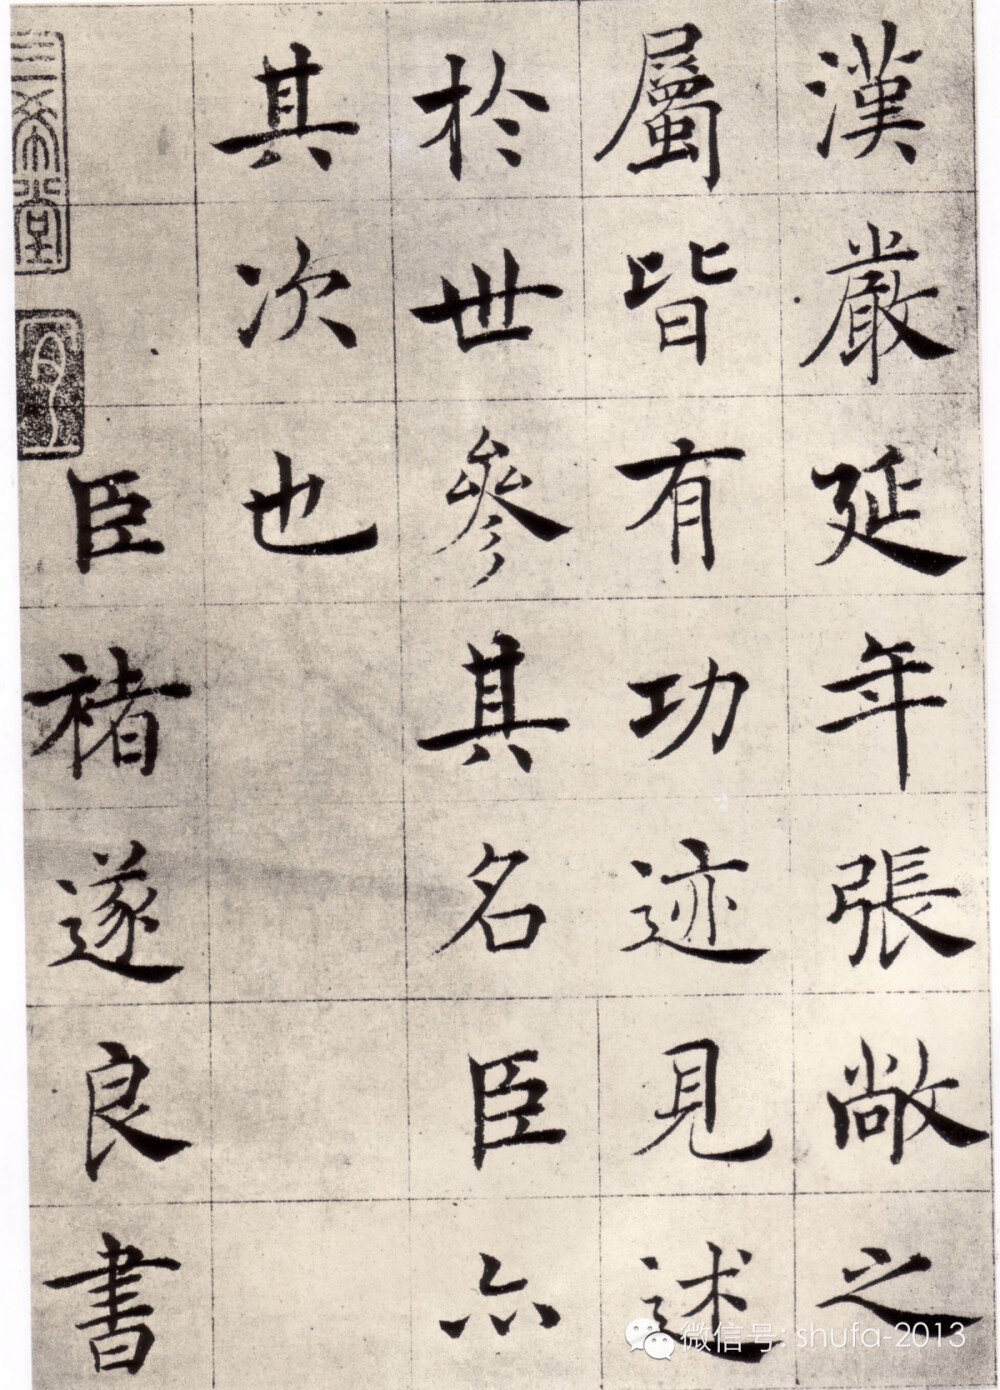 漢嚴延年張敞之
屬皆有功迹見述
於世參其名臣亦
其次也
臣褚遂良書
三希堂
微信号: shufa-2013